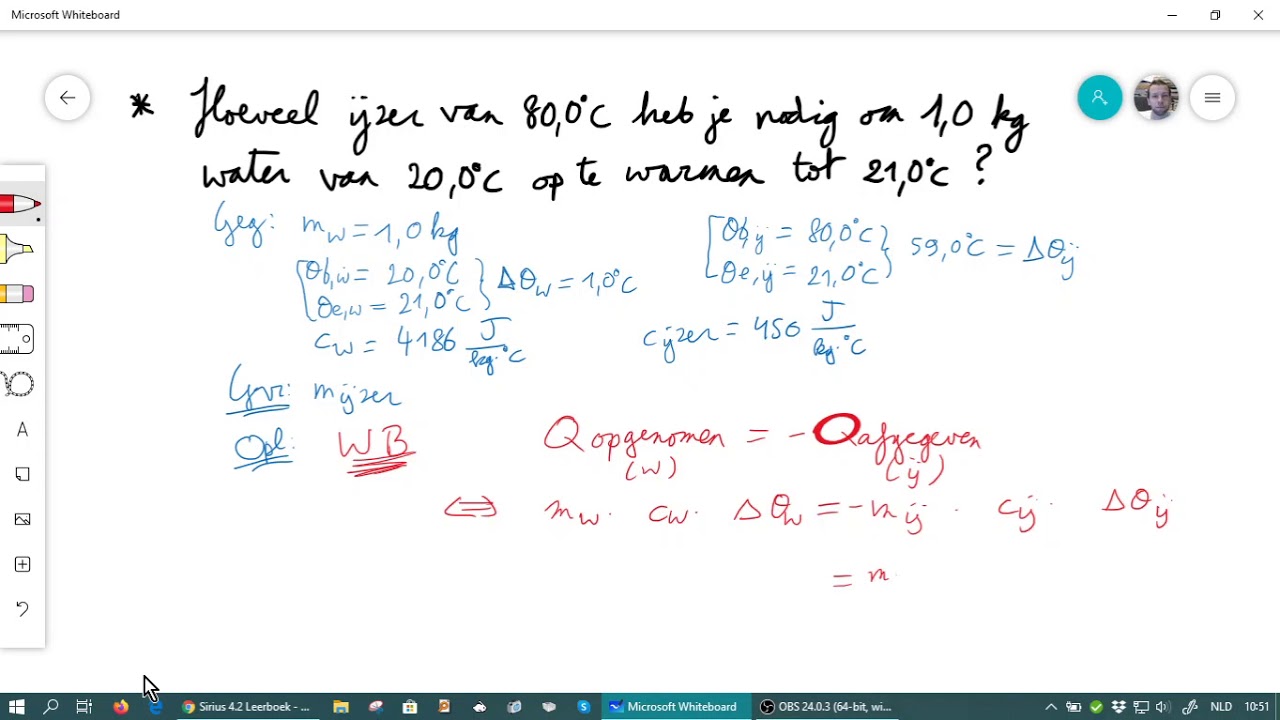 Microsoft Whiteboard
* Hoeveel ijzer van 80,0°C heb je nodig om 1,0 kg
water van 20,0°C op te warmen tot 21,0°C ?
Geg: mw = 1,0 kg
θb,w = 20,0°C
θe,w = 21,0°C
Δθw = 1,0°C
cw = 4186 J/kg.°C
θb,ij = 80,0°C
θe,ij = 21,0°C
59,0°C = Δθij
cijzer = 450 J/kg.°C
Gvr: mijzer
Opl: WB
Qopgenomen = - Qafgegeven
(w) (ij)
⇔ mw. cw. Δθw = -mij . cij. Δθij
= m
A
Sirius 4.2 Leerboek - ...
Microsoft Whiteboard
OBS 24.0.3 (64-bit, wi...
NLD 10:51